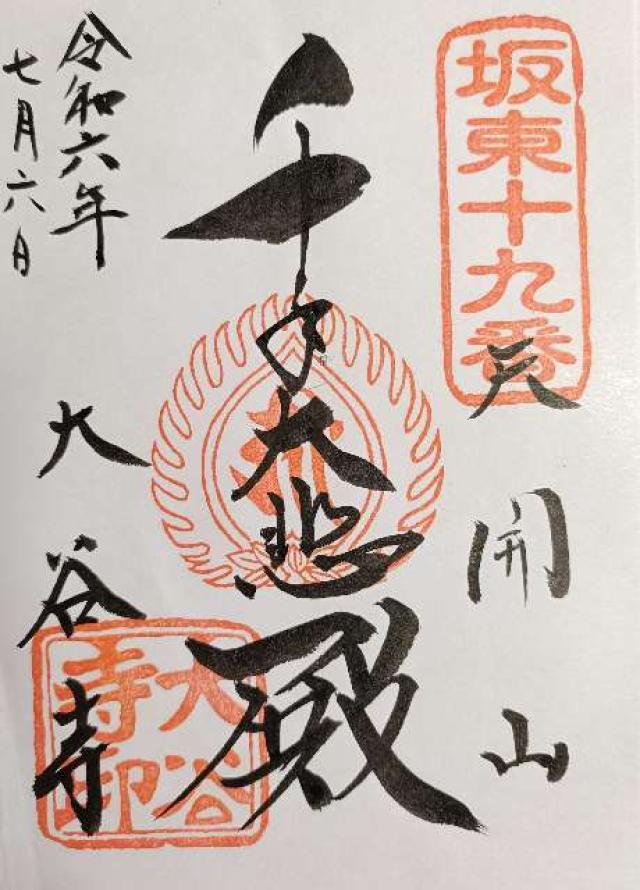 坂東十九番
天開山
千手大悲殿
大谷寺
大谷寺印
令和六年
七月六日